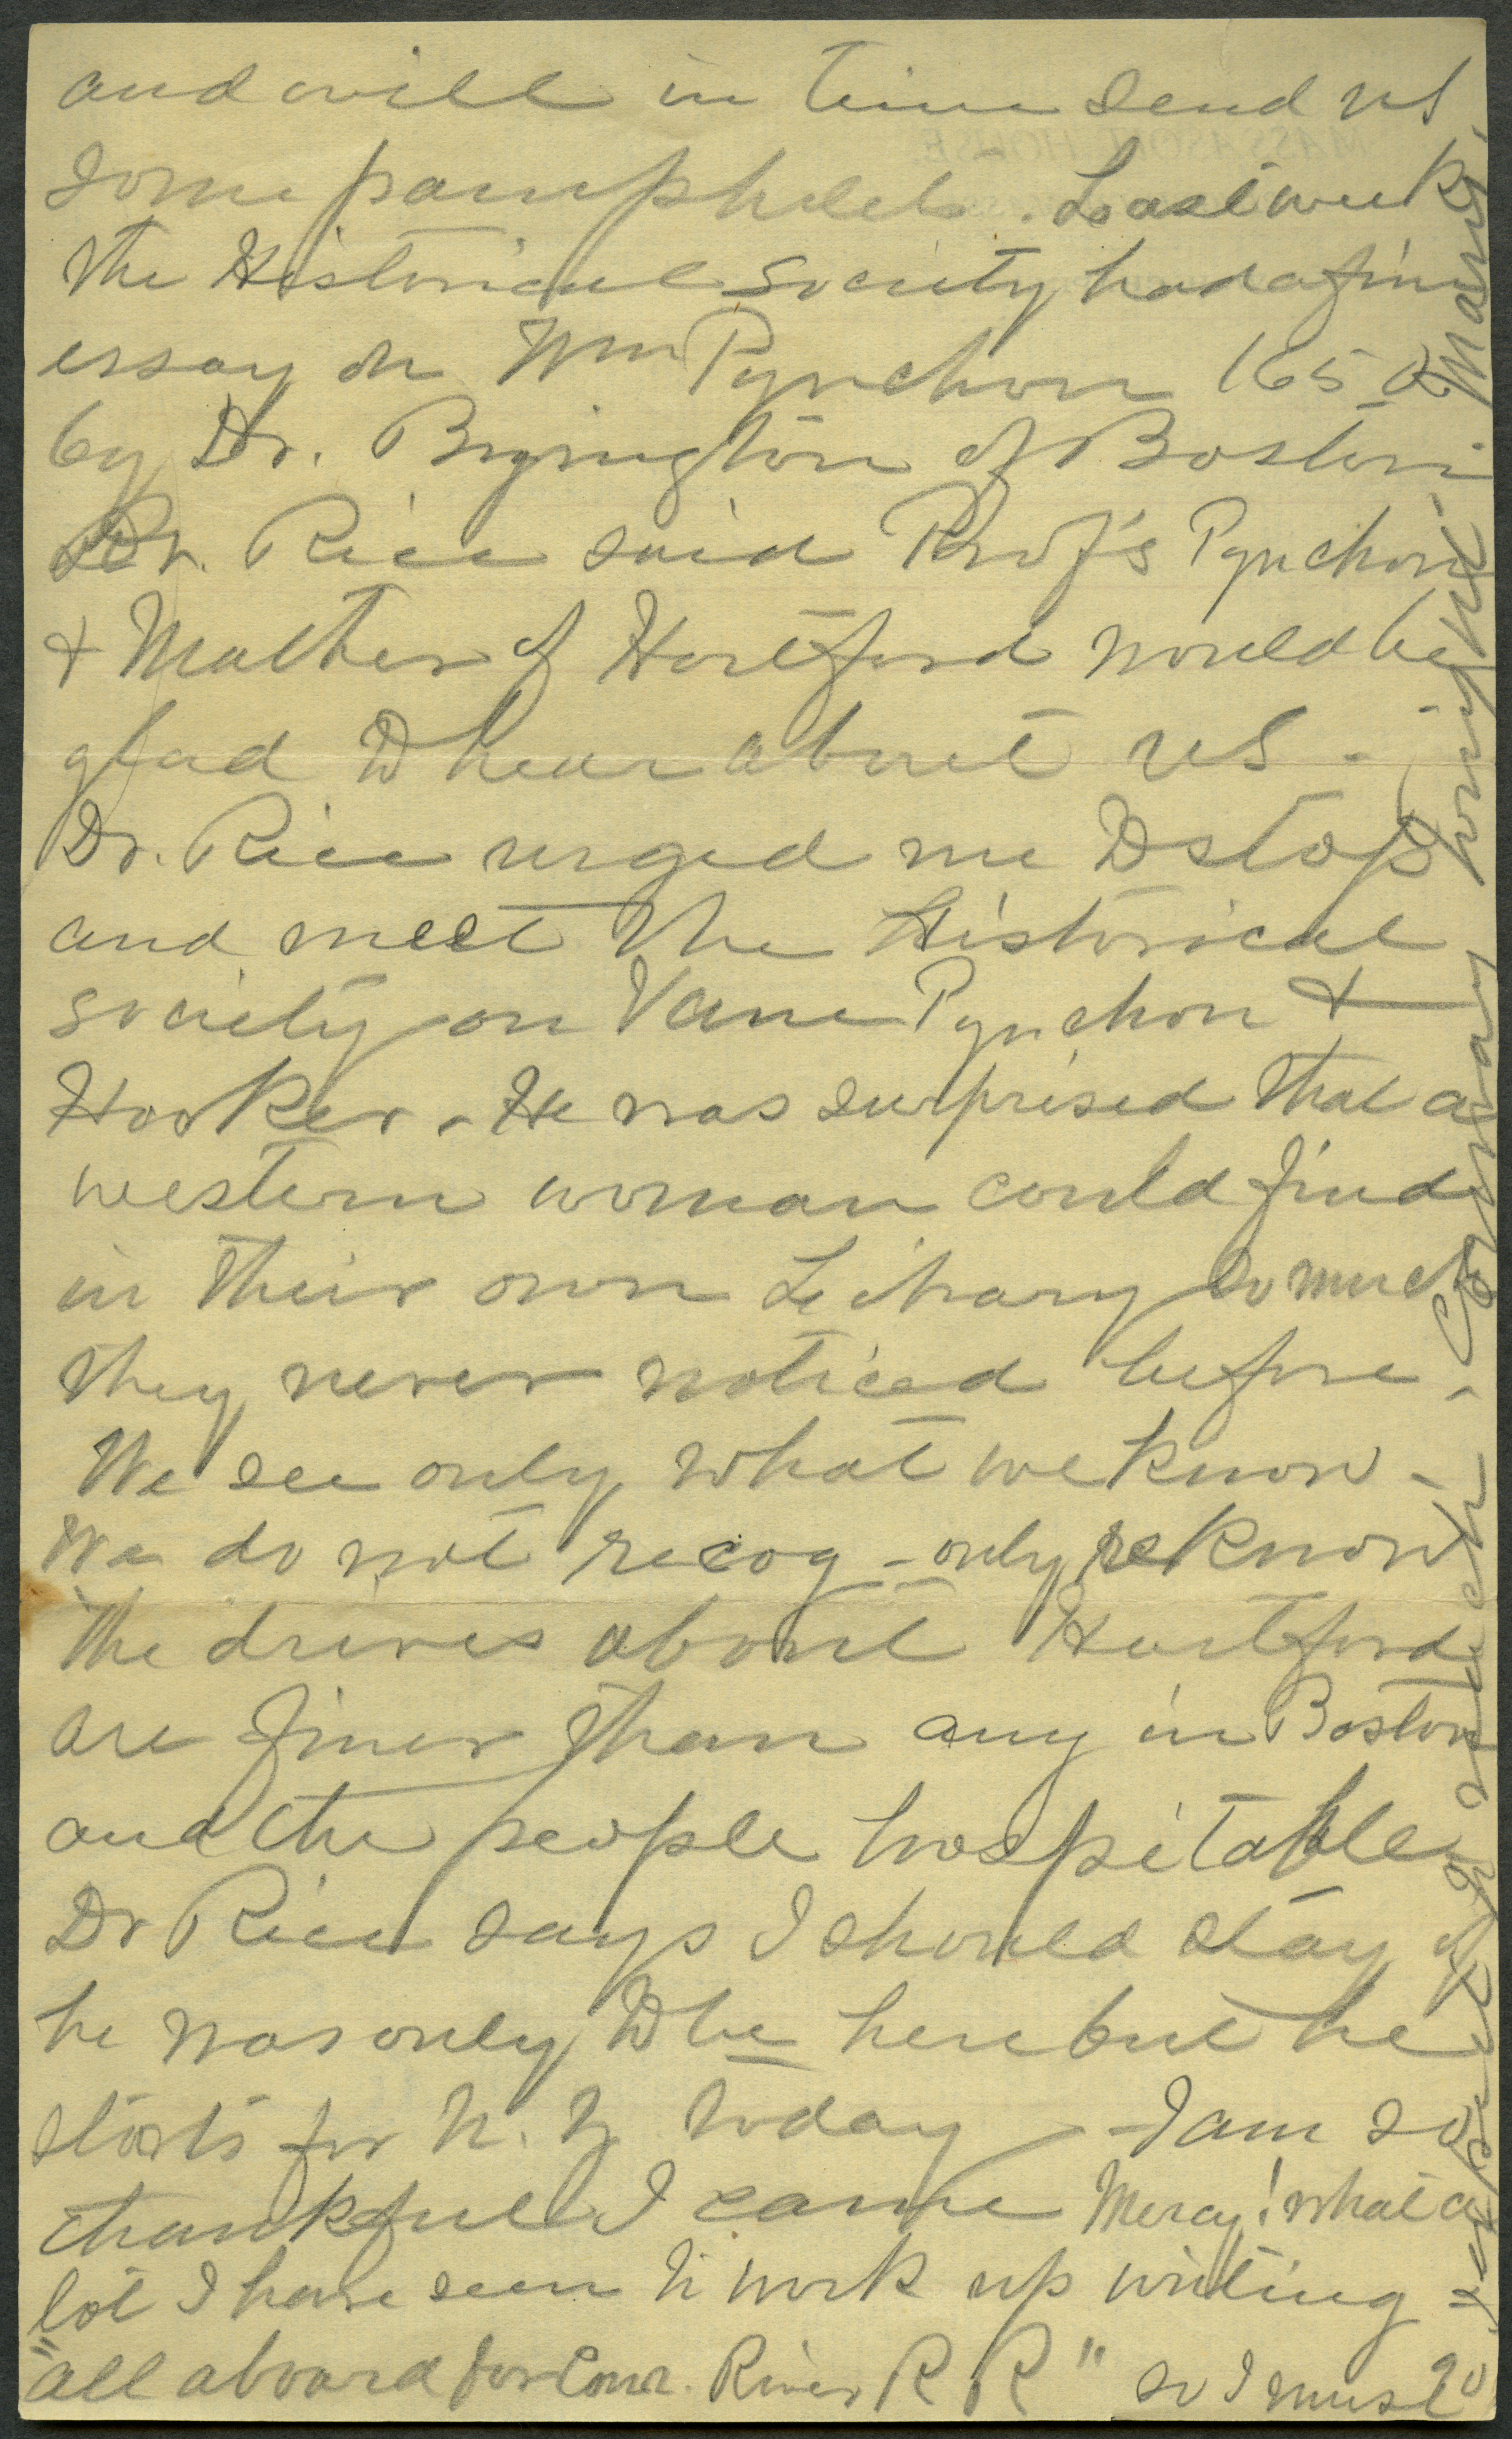 and will in time send us
some pamphlets. Last week
the Historical Society had a fine
essay on Wm Pynchon 1650
by Dr. Byington of Boston.
Dr. Rice said Prof's Pynchon
& Mather of Hartford would be
glad to hear about us -
Dr. Rice urged me to stop
and meet the Historical
society on Vane Pynchon &
Hooker. - He was surprised that a
western woman could find
in their own Library so much
they never noticed before.
We see only what we know -
We do not recog - only reknow
The drives about Hartford
are finer than any in Boston
and the people hospitable
Dr Rice says I should stay if
he was only to be here but he
starts for N. Y. today - I am so
thankful I came Mercy! what a
lot I have seen to work up writing
"all aboard for Conn. River R R" so I must go
of much
Company
Mary